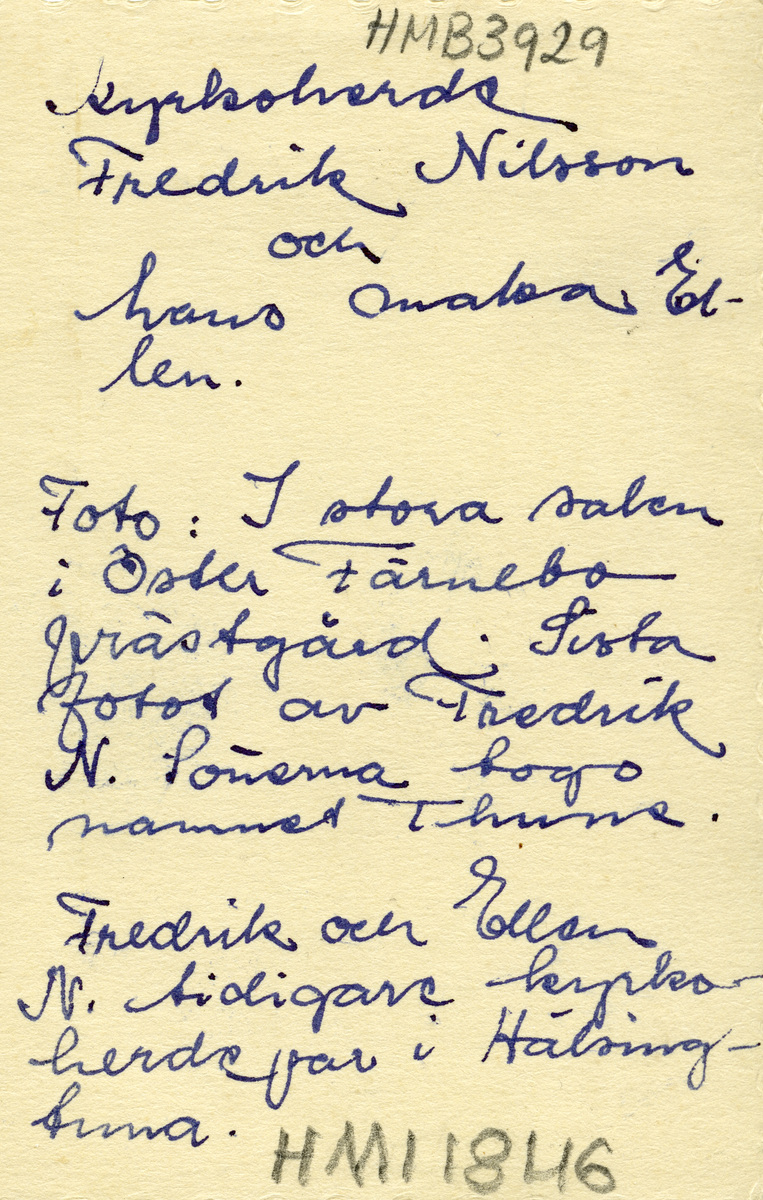 HMB3929
Kyrkoherde
Fredrik Nilsson
och
hans maka El-
len.
Foto: I stora salen
i Öster Färnebo
prästgård. Sista
fotot av Fredrik
N. Sönerna togo
namnet Thune.
Fredrik och Ellen
N. tidigare kyrko-
herdepar i Hälsing-
tuna.
HM11846